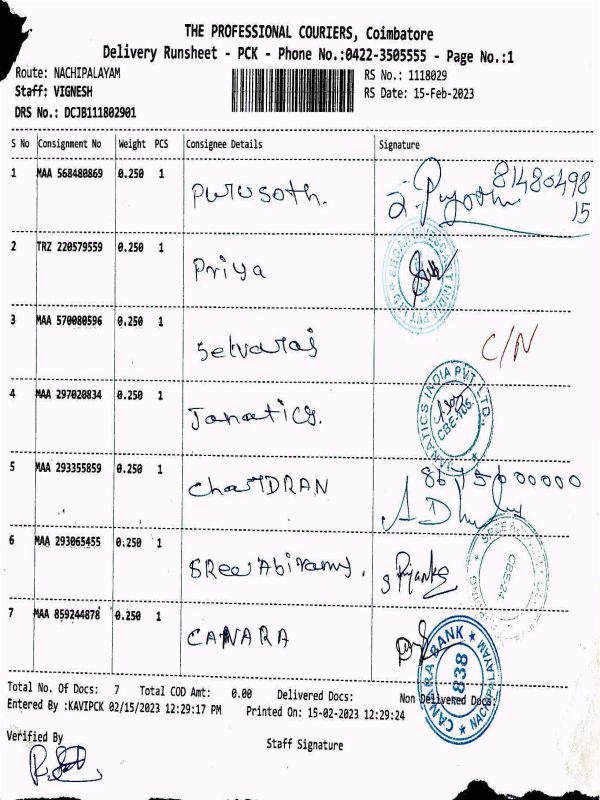 THE PROFESSIONAL COURIERS, Coimbatore
Delivery Runsheet - PCK - Phone No.:0422-3505555 - Page No.:1
Route: NACHIPALAYAM RS No.: 1118029
Staff: VIGNESH RS Date: 15-Feb-2023
DRS No.: DCJB111802901
S No Consignment No Weight PCS Consignee Details Signature
1 MAA 568480869 0.250 1 Purusoth. 81480498
15
2 TRZ 220579559 0.250 1 Priya
3 MAA 570080596 0.250 1 Selvaraj C/N
4 MAA 297020834 0.250 1 Janatics.
JANATICS INDIA PVT. LTD.
5 MAA 293355859 0.250 1 ChanDRAN
6 MAA 293065455 0.250 1 SRee Abiramy. S Priyanka
CBE-24
7 MAA 859244878 0.250 1 CANARA
CANARA BANK
838
NACHIPALAYAM
Total No. Of Docs: 7 Total COD Amt: 0.00 Delivered Docs: Non Delivered Docs:
Entered By :KAVIPCK 02/15/2023 12:29:17 PM Printed On: 15-02-2023 12:29:24
Verified By Staff Signature